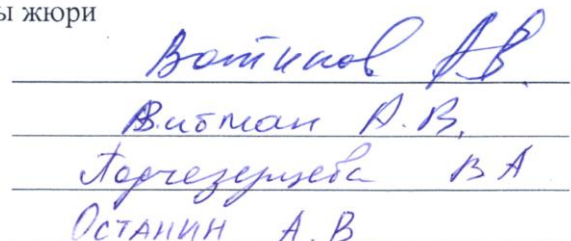 ы жюри
Вотинов А.В.
Витман А.В.
Подчезерцева В А
Останин А. В